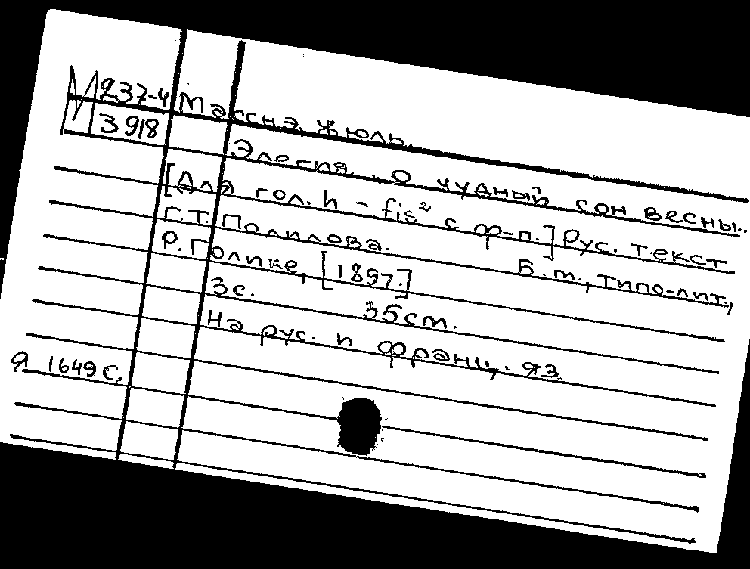 М 237-4 Массна, Жюль.
3918
Элегия. О чудный сон весны..
[Для гол. h - fis² с ф-п.] Рус. текст
Г.Т. Полилова. Б.м., типо-лит.,
Р. Голике, [1897.]
3с. 35см.
На рус. и франц. яз.
Я 1649 С.